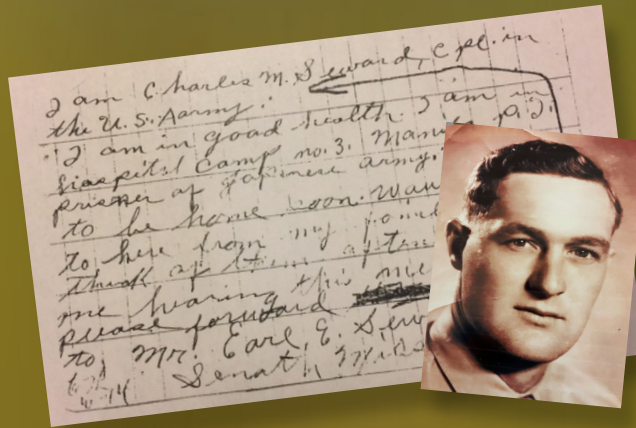 I am Charles M. Seward, Cpl. in
the U.S. Aarmy.
I am in good health. I am in
Hospital Camp no. 3. Manila P.I.
prisner of Japanese army.
to be home soon.
to here from my
think of them
me hearing this me
please forward
to Mr. Earl, E. Sew
Senath, Miss